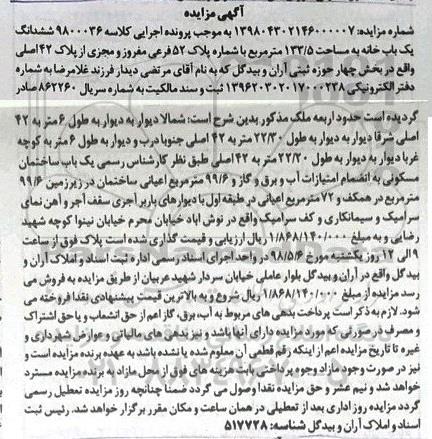 آگهی مزایده
شماره مزایده: ۱۳۹۸۰۴۳۰۲۱۴۶۰۰۰۰۰۷ به موجب پرونده اجرایی کلاسه ۹۸۰۰۰۳۶ ششدانگ
یک باب خانه به مساحت ۱۳۳/۵ مترمربع با شماره پلاک ۵۲ فرعی مفروز و مجزی از پلاک ۴۲ اصلی
واقع در بخش چهار حوزه ثبتی آران و بیدگل که به نام آقای مرتضی دیدار فرزند غلامرضا به شماره
دفتر الکترونیکی ۱۳۹۶۲۰۳۰۲۰۱۷۰۰۰۲۳۸ ثبت و سند مالکیت به شماره سریال ۸۶۲۲۶۰ صادر
گردیده است حدود اربعه ملک مذکور بدین شرح است: شمالا دیوار به دیوار به طول ۶ متر به ۴۲
اصلی شرقا دیوار به دیوار به طول ۲۲/۳۰ متر به ۴۲ اصلی جنوبا درب و دیوار به طول ۶ متر به کوچه
غربا دیوار به دیوار به طول ۲۲/۳۰ متر به ۴۲ اصلی طبق نظر کارشناس رسمی یک باب ساختمان
مسکونی به انضمام امتیازات آب و برق و گاز و ۹۹/۶ مترمربع اعیانی ساختمان در زیرزمین ۹۹/۶
مترمربع در همکف و ۷۲ مترمربع اعیانی در طبقه اول با دیوارهای باربر آجری سقف آجر و آهن نمای
سرامیک و سیمانکاری و کف سرامیک واقع در نوش آباد خیابان محرم خیابان نینوا کوچه شهید
رضایی و به مبلغ ۱/۸۶۸/۱۴۰/۰۰۰ ریال ارزیابی و قیمت گذاری شده است پلاک فوق از ساعت
۹ الی ۱۲ روز یکشنبه مورخ ۹۸/۵/۶ در واحد اجرای اسناد رسمی اداره ثبت اسناد و املاک آران و
بیدگل واقع در آران و بیدگل بلوار عاملی خیابان سردار شهید عربیان از طریق مزایده به فروش می
رسد مزایده از مبلغ ۱/۸۶۸/۱۴۰/۰۰۰ ریال شروع و به بالاترین قیمت پیشنهادی نقدا فروخته می
شود. لازم به ذکر است پرداخت بدهی های مربوط به آب، برق، گاز اعم از حق انشعاب و یا حق اشتراک
و مصرف در صورتی که مورد مزایده دارای آنها باشد و نیز بدهی های مالیاتی و عوارض شهرداری و
غیره تا تاریخ مزایده اعم از اینکه رقم قطعی آن معلوم شده یا نشده باشد به عهده برنده مزایده است و
نیز در صورت وجود مازاد وجوه پرداختی بابت هزینه های فوق از محل مازاد به برنده مزایده مسترد
خواهد شد و نیم عشر و حق مزایده نقدا وصول می گردد ضمنا چنانچه روز مزایده تعطیل رسمی
گردد مزایده روز اداری بعد از تعطیلی در همان ساعت و مکان مقرر برگزار خواهد شد. رئیس ثبت
اسناد و املاک آران و بیدگل شناسه: ۵۱۷۷۲۸